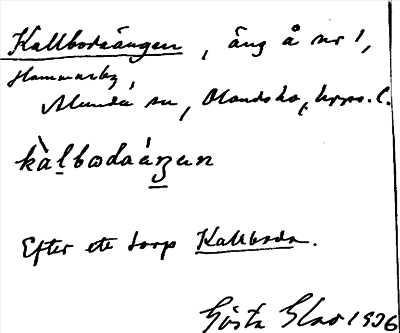 Kallbodaängen, äng å nr 1,
Hammarby,
Alunda sn, Olands hd, Upps. l.
kàlbωdaáŋan
Efter ett torp Kallboda.
Gösta 1936